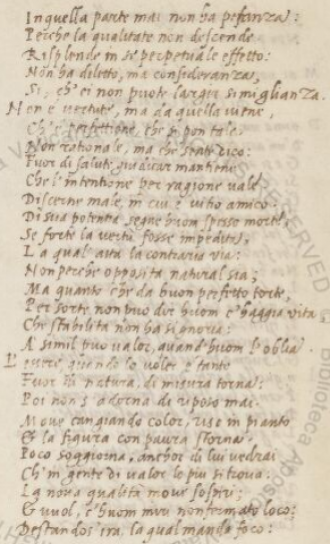 In quella parte mai non ha pesanza:
Perche la qualitate non descende
Risplende in se perpetuale effetto:
Non ha diletto, ma consideranza,
Si, ch'ei non puote largir simiglianza.
Non è vertute, ma da quella viene,
Ch'è perfettione, che si pon tale,
Non rationale, ma che sente dico:
Fuor di salute giudicar mantiene
Che l'intentione per ragione vale
Discerne male, in cui è vitio amico.
Di sua potenta segue huom spesso morte,
Se forte la vertù fosse impedita,
La qual' aita la contraria via:
Non perche opposita natural sia;
Ma quanto che da buon perfetto torte,
Per sorte non puo dir huom c'haggia vita,
Che stabilita non ha signoria:
A' simil puo valor, quand'huom l'oblia
L'essere, quando lo voler è tanto
Fuor di natura, di misura torna:
Poi non s'adorna di riposo mai.
Move cangiando color, riso in pianto
Et la figura con paura storna.
Poco soggiorna, anchor di lui vedrai
Ch'in gente di valor le piu si trova:
La nova qualità move sospiri;
Et vuol, c'huom miri non formato loco:
Destandos'ira, la qual manda foco:
RESERVED
Biblioteca Aposto